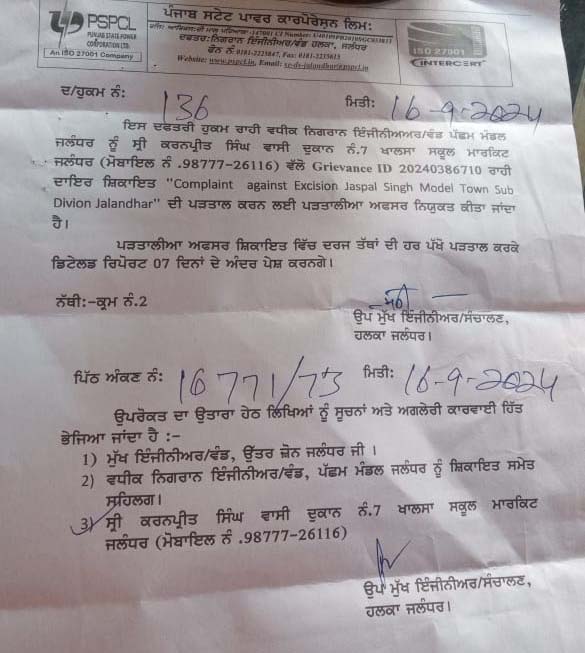 PSPCL
PUNJAB STATE POWER
CORPORATION LTD.
An ISO 27001 Company
ਪੰਜਾਬ ਸਟੇਟ ਪਾਵਰ ਕਾਰਪੋਰੇਸ਼ਨ ਲਿਮ:
ਦਫਤਰ:ਨਿਗਰਾਨ ਇੰਜੀਨੀਅਰ/ਵੰਡ ਹਲਕਾ, ਜਲੰਧਰ
ਫੋਨ ਨੰ 0181-2225847, Fax: 0181-2225015
Website: www.pspcl.in, Email: se-ds-jalandhar@pspcl.in
ISO 27001
INTERCERT
ਦ/ਹੁਕਮ ਨੰ: 136 ਮਿਤੀ: 16-9-2024
ਇਸ ਦਫਤਰੀ ਹੁਕਮ ਰਾਹੀ ਵਧੀਕ ਨਿਗਰਾਨ ਇੰਜੀਨੀਅਅਰ/ਵੰਡ ਪੱਛਮ ਮੰਡਲ
ਜਲੰਧਰ ਨੂੰ ਸ੍ਰੀ ਕਰਨਪ੍ਰੀਤ ਸਿੰਘ ਵਾਸੀ ਦੁਕਾਨ ਨੰ.7 ਖਾਲਸਾ ਸਕੂਲ ਮਾਰਕਿਟ
ਜਲੰਧਰ (ਮੋਬਾਇਲ ਨੰ .98777-26116) ਵੱਲੋ Grievance ID 20240386710 ਰਾਹੀ
ਦਾਇਰ ਸ਼ਿਕਾਇਤ "Complaint against Excision Jaspal Singh Model Town Sub
Divion Jalandhar" ਦੀ ਪੜਤਾਲ ਕਰਨ ਲਈ ਪੜਤਾਲੀਆ ਅਫਸਰ ਨਿਯੁਕਤ ਕੀਤਾ ਜਾਂਦਾ
ਹੈ।
ਪੜਤਾਲੀਆ ਅਫਸਰ ਸ਼ਿਕਾਇਤ ਵਿੱਚ ਦਰਜ ਤੱਥਾਂ ਦੀ ਹਰ ਪੱਖੋ ਪੜਤਾਲ ਕਰਕੇ
ਡਿਟੇਲਡ ਰਿਪੋਰਟ 07 ਦਿਨਾਂ ਦੇ ਅੰਦਰ ਪੇਸ਼ ਕਰਨਗੇ।
ਨੱਥੀ:-ਕ੍ਰਮ ਨੰ.2
ਉਪ ਮੁੱਖ ਇੰਜੀਨੀਅਰ/ਸੰਚਾਲਣ,
ਹਲਕਾ ਜਲੰਧਰ।
ਪਿੱਠ ਅੰਕਣ ਨੰ: 16771/73 ਮਿਤੀ: 16-9-2024
ਉਪਰੋਕਤ ਦਾ ਉਤਾਰਾ ਹੇਠ ਲਿਖਿਆਂ ਨੂੰ ਸੂਚਨਾਂ ਅਤੇ ਅਗਲੇਰੀ ਕਾਰਵਾਈ ਹਿੱਤ
ਭੇਜਿਆ ਜਾਂਦਾ ਹੈ :-
1) ਮੁੱਖ ਇੰਜੀਨੀਅਰ/ਵੰਡ, ਉੱਤਰ ਜ਼ੋਨ ਜਲੰਧਰ ਜੀ ।
2) ਵਧੀਕ ਨਿਗਰਾਨ ਇੰਜੀਨੀਅਰ/ਵੰਡ, ਪੱਛਮ ਮੰਡਲ ਜਲੰਧਰ ਨੂੰ ਸ਼ਿਕਾਇਤ ਸਮੇਤ
ਸੁਹਿਲਗ।
3) ਸ੍ਰੀ ਕਰਨਪ੍ਰੀਤ ਸਿੰਘ ਵਾਸੀ ਦੁਕਾਨ ਨੰ.7 ਖਾਲਸਾ ਸਕੂਲ ਮਾਰਕਿਟ
ਜਲੰਧਰ (ਮੋਬਾਇਲ ਨੰ .98777-26116)
ਉਪ ਮੁੱਖ ਇੰਜੀਨੀਅਰ/ਸੰਚਾਲਣ,
ਹਲਕਾ ਜਲੰਧਰ।